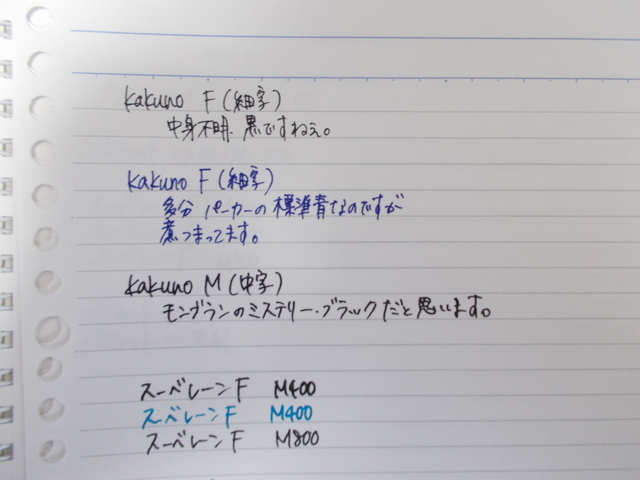 kakuno F (細字)
中身不明. 黒ですねぇ。
kakuno F (細字)
多分 パーカーの標準青なのですが
煮つまってます。
kakuno M (中字)
モンブランのミステリー・ブラックだと思います。
スーベレーンF M400
スーベレーンF M400
スーベレーンF M800